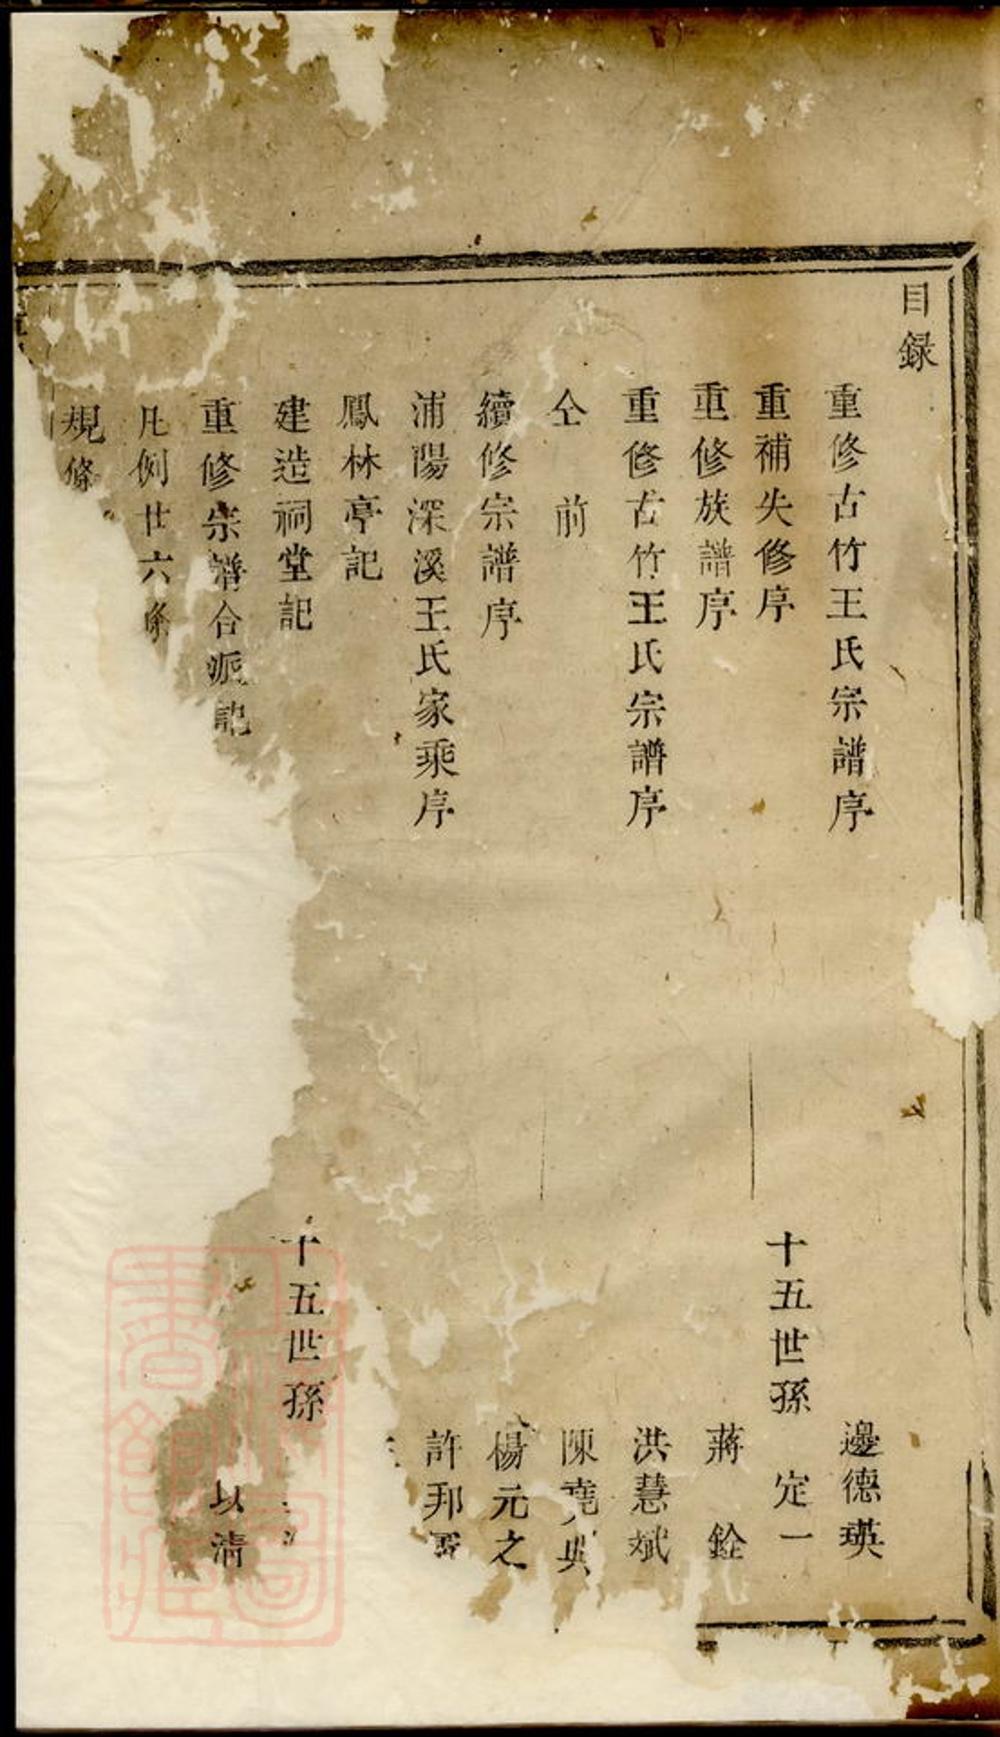 目録
重修古竹王氏宗譜序 邊德瑛
重補失修序 十五世孫 定一
重修族譜序 蔣銓
重修古竹王氏宗譜序 洪慧斌
仝前 陳堯典
續修宗譜序 楊元之
浦陽深溪王氏家乘序 許邦
鳳林亭記
建造祠堂記 十五世孫
重修宗譜合派記 以清
凡例廿六條
規條
上海圖書館藏